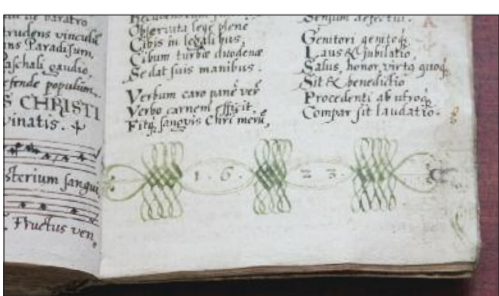 de baratro
trudens vinculis
ans Paradisum,
Paschali gaudio,
fende populum.
S CHRISTI
vinatis.
sterium sangui
Fructus ven,
Observata lege plene
Cibis in legalibus,
Cibum turbæ duodenæ
Se dat suis manibus.
Verbum caro panē verū
Verbo carnem efficit.
Fitq; sangvis Chrī merū,
Sensum defectui.
Genitori genitoq;
Laus & Jubilatio.
Salus, honor, virtq quoq;
Sit & benedictio
Procedenti ab utroq;
Compar sit laudatio.
1 · 6 · 2 3 ·